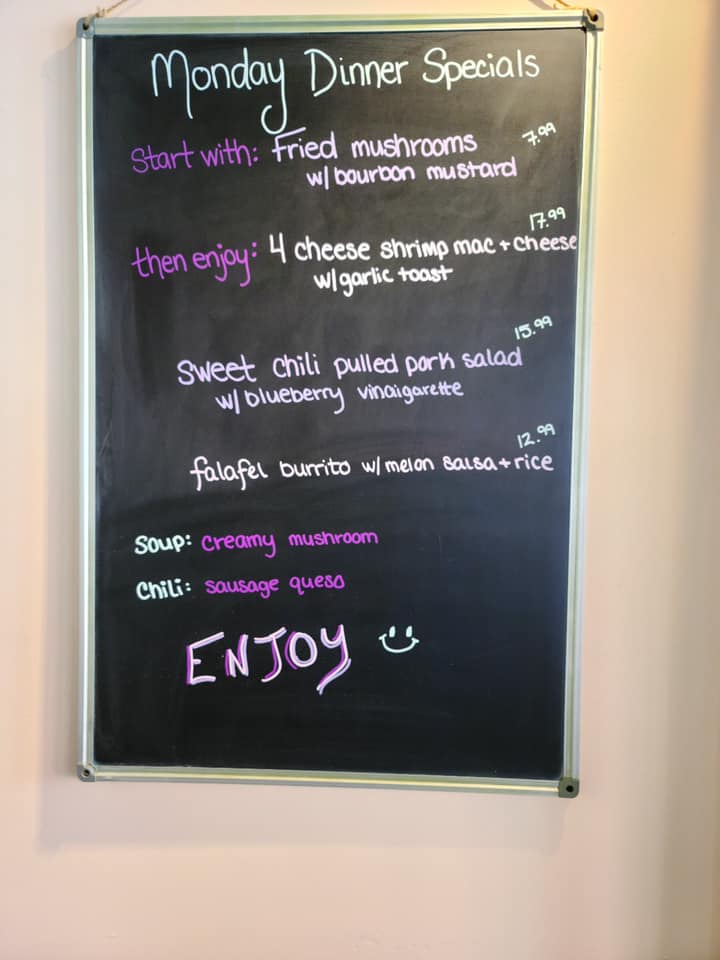 Monday Dinner Specials
Start with: Fried mushrooms 7.99
w/ bourbon mustard
17.99
then enjoy: 4 cheese shrimp mac + cheese
w/ garlic toast
15.99
Sweet chili pulled pork salad
w/ blueberry vinaigarette
12.99
falafel burrito w/ melon salsa + rice
Soup: Creamy mushroom
Chili: sausage queso
ENJOY